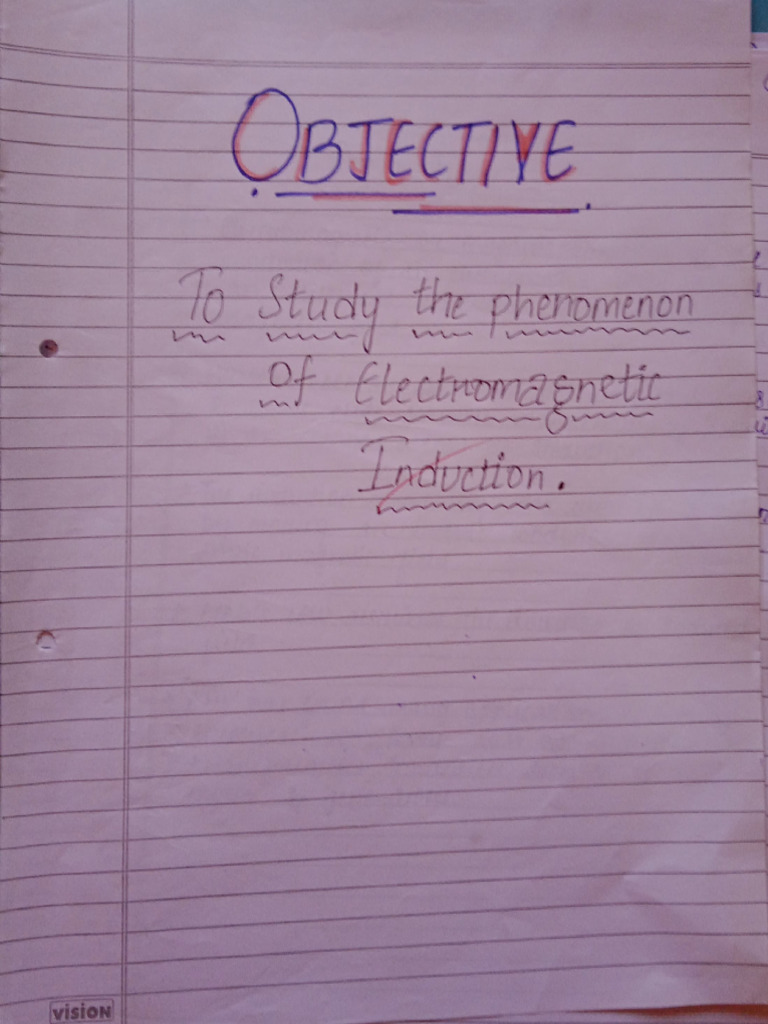 OBJECTIVE
To Study the phenomenon
Of Electromagnetic
Induction.
vision